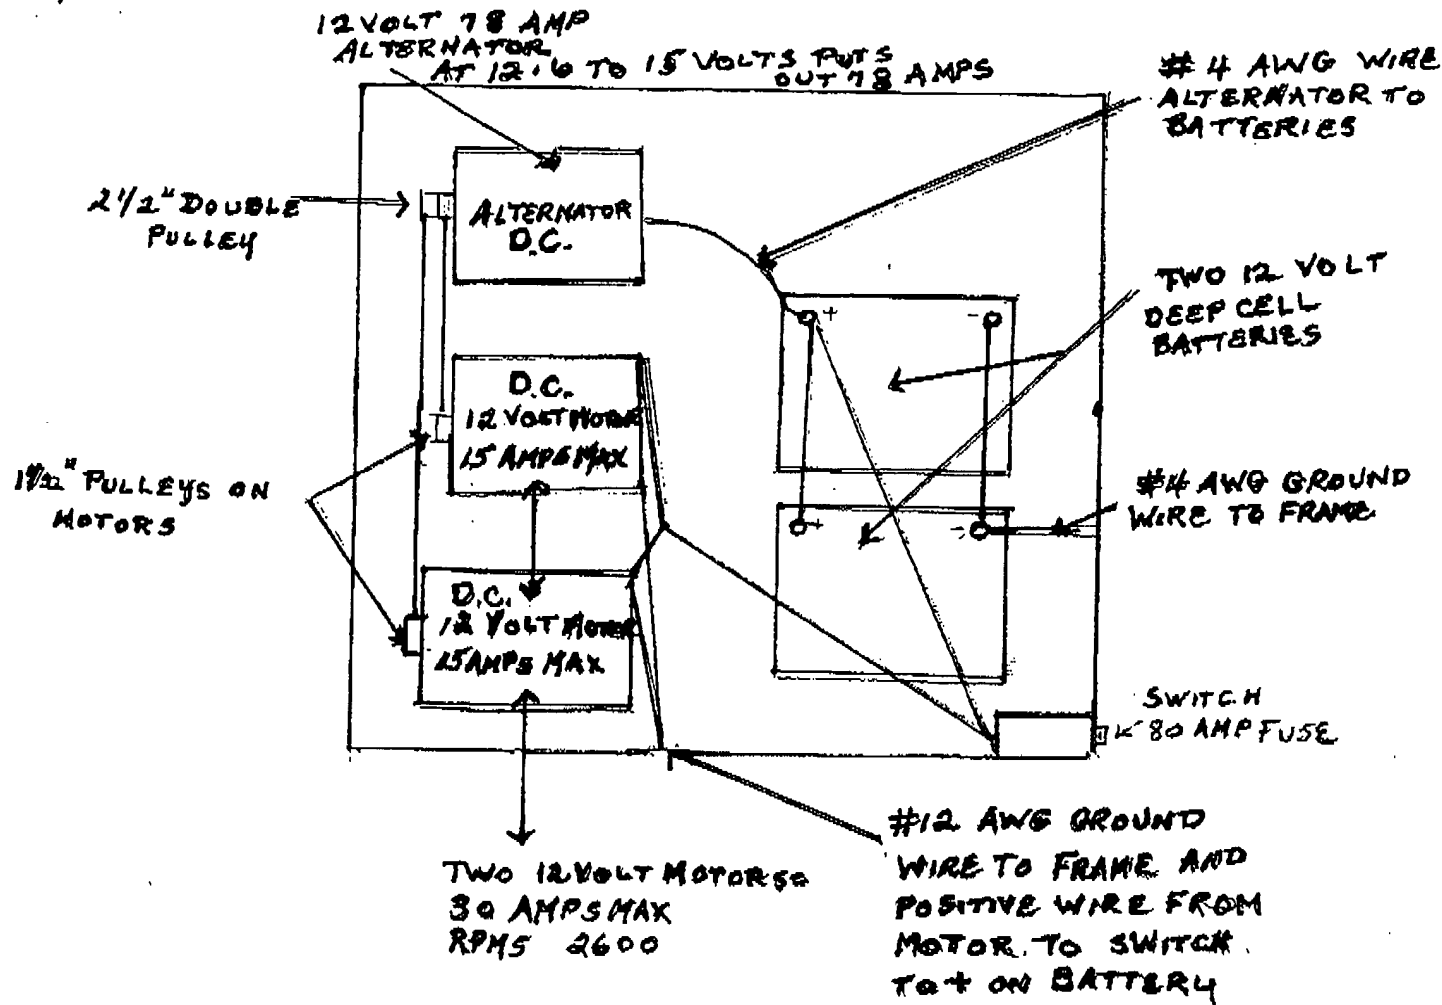 12 VOLT 78 AMP
ALTERNATOR
AT 12.6 TO 15 VOLTS PUTS
OUT 78 AMPS
# 4 AWG WIRE
ALTERNATOR TO
BATTERIES
2 1/2" DOUBLE
PULLEY
ALTERNATOR
D.C.
TWO 12 VOLT
DEEP CELL
BATTERIES
+ -
D.C.
12 VOLT MOTOR
15 AMPS MAX
PULLEYS ON
MOTORS
#4 AWG GROUND
WIRE TO FRAME
+ -
D.C.
12 VOLT MOTOR
15 AMPS MAX
SWITCH
80 AMP FUSE
TWO 12 VOLT MOTORS
30 AMPS MAX
RPMS 2600
#12 AWG GROUND
WIRE TO FRAME AND
POSITIVE WIRE FROM
MOTOR. TO SWITCH
TO + ON BATTERY